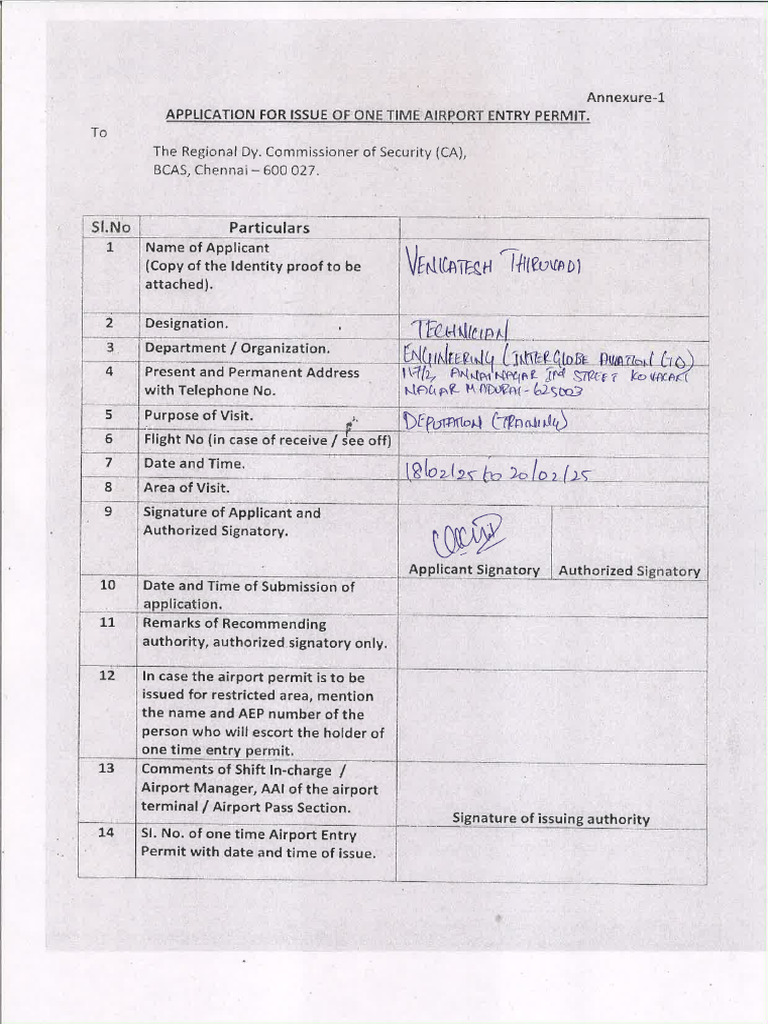 Annexure-1
APPLICATION FOR ISSUE OF ONE TIME AIRPORT ENTRY PERMIT.
To
The Regional Dy. Commissioner of Security (CA),
BCAS, Chennai – 600 027.
Sl.No Particulars
1 Name of Applicant
(Copy of the Identity proof to be
attached).
VENKATESH THIRUVADI
2 Designation.
TECHNICIAN
3 Department / Organization.
ENGINEERING (INTERGLOBE AVIATION LTD)
4 Present and Permanent Address
with Telephone No.
117/2, ANNAI NAGAR IInd STREET
NAGAR MADURAI - 625003
5 Purpose of Visit.
DEPUTATION (TRAINING)
6 Flight No (in case of receive / see off)
7 Date and Time.
18/02/25 to 20/02/25
8 Area of Visit.
9 Signature of Applicant and
Authorized Signatory.
Applicant Signatory Authorized Signatory
10 Date and Time of Submission of
application.
11 Remarks of Recommending
authority, authorized signatory only.
12 In case the airport permit is to be
issued for restricted area, mention
the name and AEP number of the
person who will escort the holder of
one time entry permit.
13 Comments of Shift In-charge /
Airport Manager, AAI of the airport
terminal / Airport Pass Section.
Signature of issuing authority
14 Sl. No. of one time Airport Entry
Permit with date and time of issue.